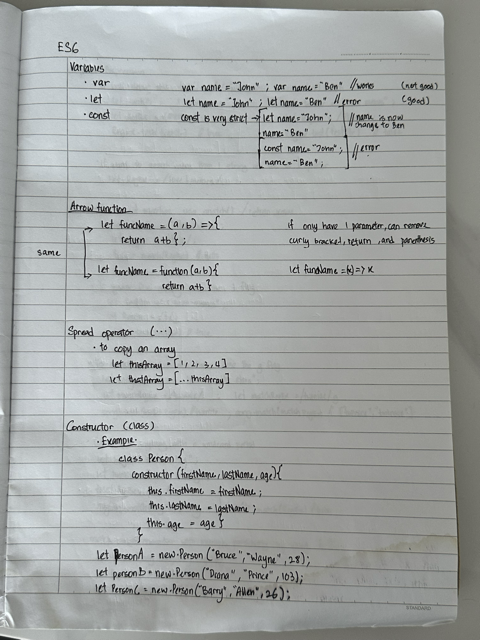 ES6
Variables
· var var name = "John" ; var name = "Ben" // works (not good)
· let let name = "John" ; let name = "Ben" // error (good)
· const const is very strict → let name = "John"; // name is now
name = "Ben" change to Ben
const name = "John"; // error
name = "Ben";
Arrow function
let funcName = (a,b) => { if only have 1 parameter, can remove
return a+b } ; curly bracket, return, and parenthesis
same
let funcName = function (a,b) { let funcName = (x) => x
return a+b }
Spread operator (...)
· to copy an array
let thisArray = [1, 2, 3, 4]
let thatArray = [...thisArray]
Constructor (class)
· Example ·
class Person {
constructor (firstName, lastName, age) {
this.firstName = firstName ;
this.lastName = lastName ;
this.age = age }
}
let personA = new·Person ("Bruce", "Wayne", 28);
let personB = new·Person ("Diana", "Prince", 103);
let PersonC = new·Person ("Barry", "Allen", 26);
STANDARD